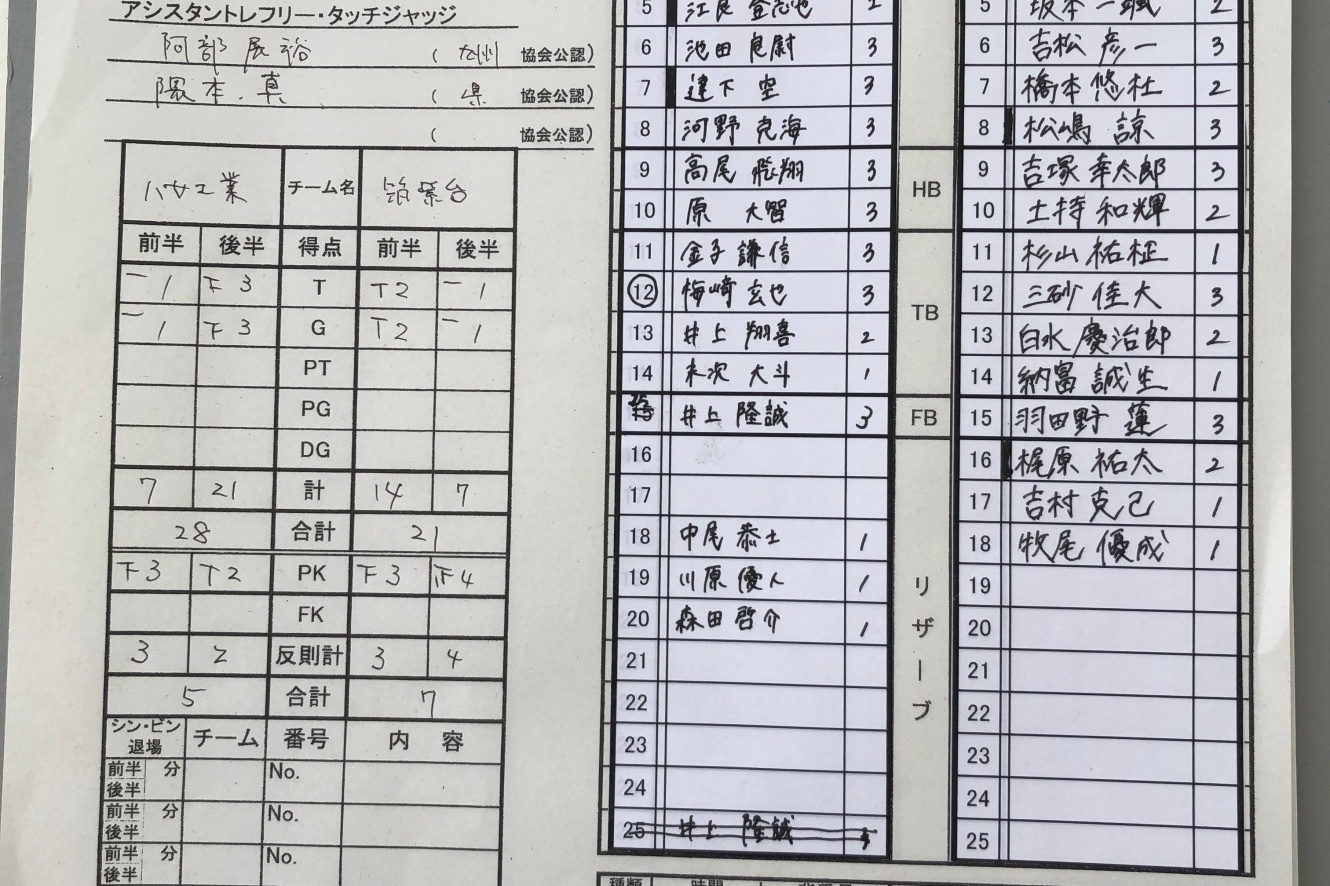 アシスタントレフリー・タッチジャッジ
阿部 展裕 ( 九州 協会公認)
隈本 真 ( 県 協会公認)
( 協会公認)
ハサエ業 チーム名 筑紫台
前半 後半 得点 前半 後半
一1 下3 T T2 一1
一1 下3 G T2 一1
PT
PG
DG
7 21 計 14 7
28 合計 21
下3 T2 PK 下3 正4
FK
3 2 反則計 3 4
5 合計 7
シン・ビン 退場 チーム 番号 内 容
前半 後半 分 No.
前半 後半 分 No.
前半 後半 分 No.
5 江良 登志也 2
6 池田 息尉 3
7 達下 空 3
8 河野 克海 3
9 高尾 飛翔 3
10 原 大智 3
11 金子 謙信 3
12 梅崎 玄也 3
13 井上 翔喜 2
14 末次 大斗 1
15 井上 隆誠 3
16
17
18 中尾 恭士 1
19 川原 優人 1
20 森田 啓介 1
21
22
23
24
25 井上 隆誠 3
HB
TB
FB
リザーブ
5 坂本 一颯 2
6 吉松 彦一 3
7 橋本 悠杜 2
8 松嶋 諒 3
9 吉塚 幸太郎 3
10 土持 和輝 2
11 杉山 祐柾 1
12 三砂 佳大 3
13 白水 慶治郎 2
14 納富 誠生 1
15 羽田野 蓮 3
16 梶原 祐太 2
17 吉村 克己 1
18 牧尾 優成 1
19
20
21
22
23
24
25
種類 時間